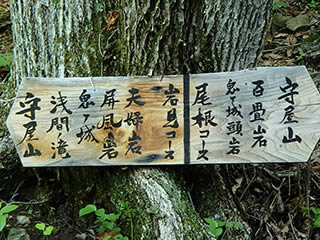 守屋山
百畳岩
鬼ヶ城頭岩
尾根コース
岩見コース
夫婦岩
屏風岩
鬼ヶ城
浅間滝
守屋山